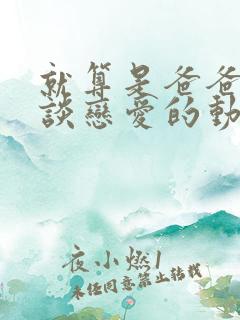 就算是爸爸
談戀愛的動
夜小燃1
未经同意禁止转载